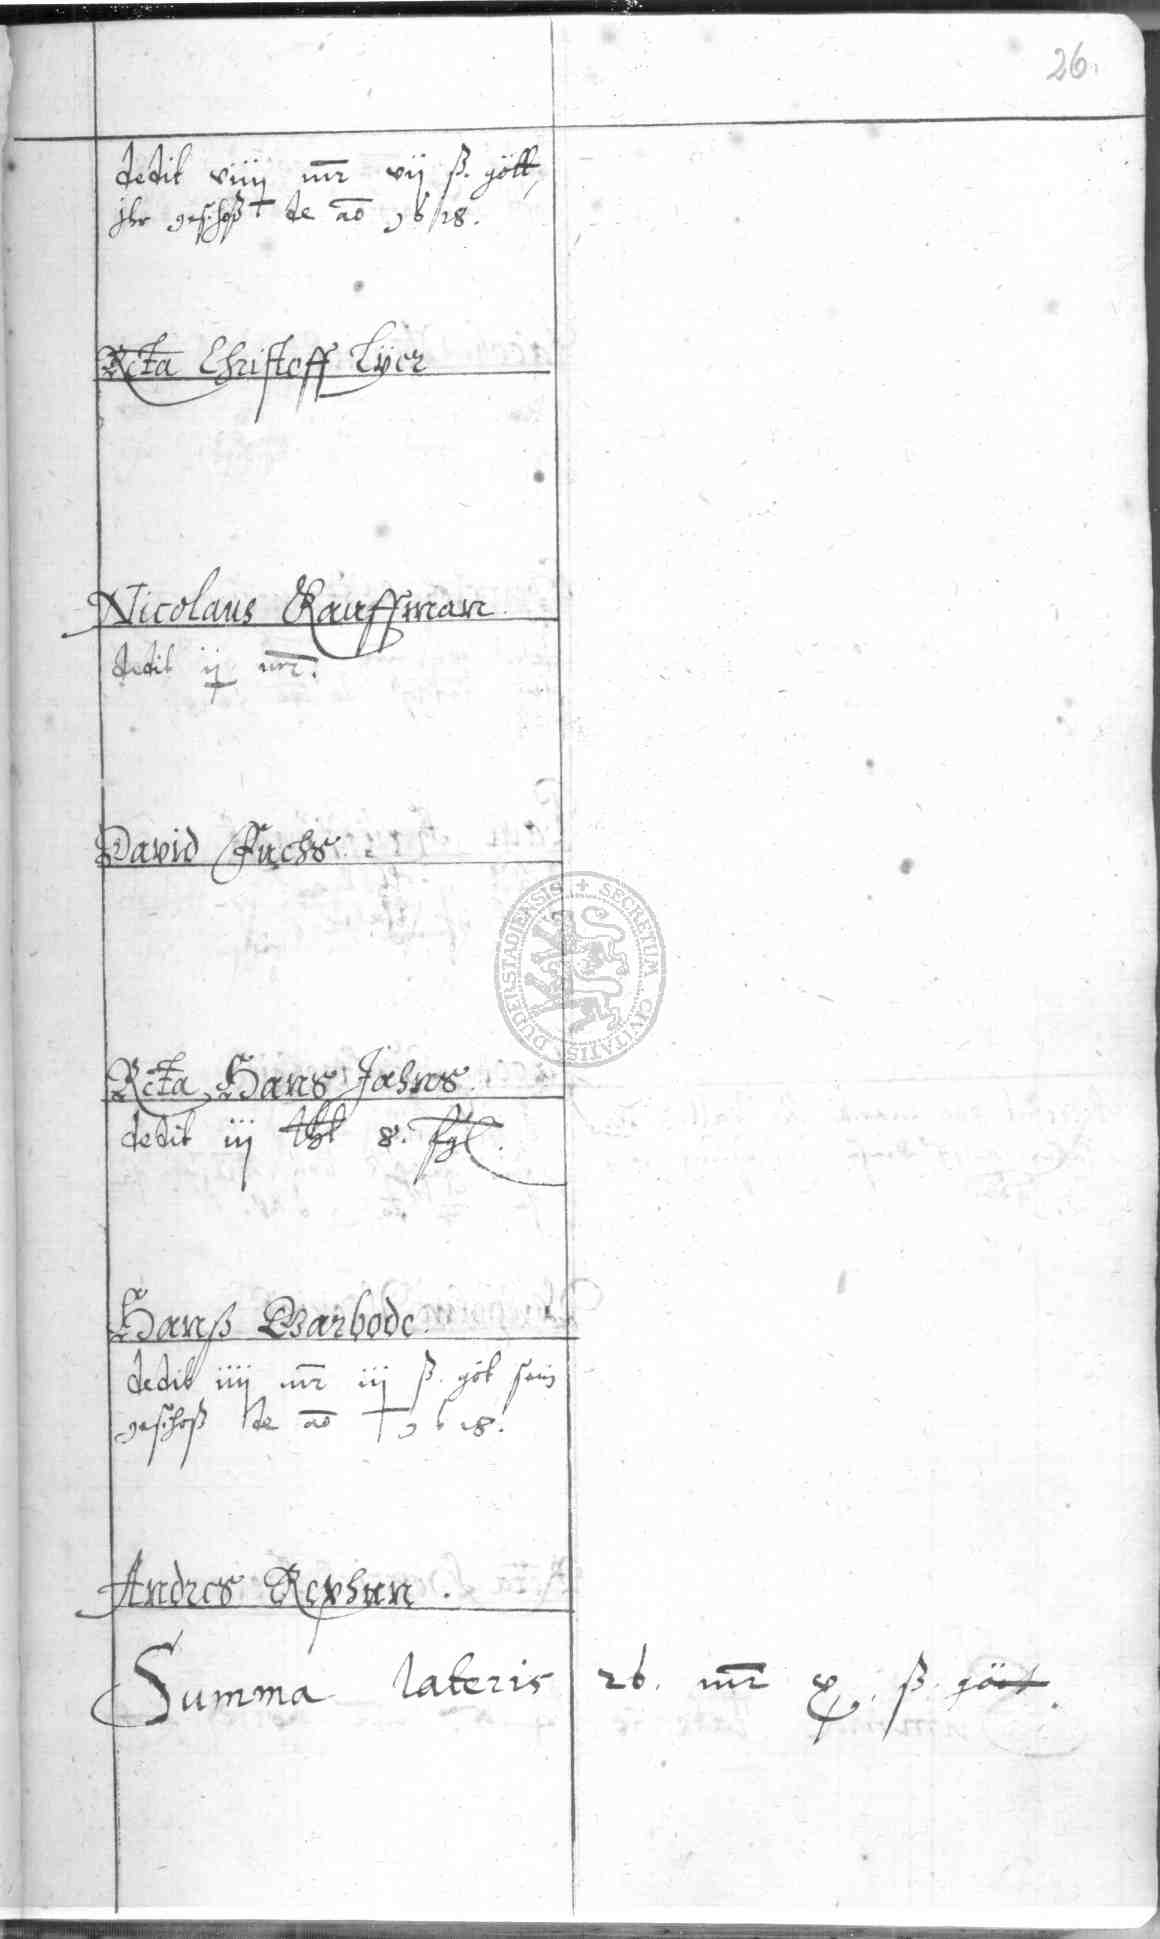 26.
dedit viiii mr vij ß. gött
ihr geschoß de ao 1618.
Rcta Christoff Tyer
Nicolaus Kauffman
dedit ij mr.
David Fuchs
Rcta Hans Jahns
dedit iij thl 8. fgl.
Hanß Warbode.
dedit iiij mr iij ß. göt sein
geschoß de ao 1618.
Andres Rephun.
Summa lateris 26. mr x. ß. göt.
SECRETUM CIVITATIS DUDERSTADIENSIS